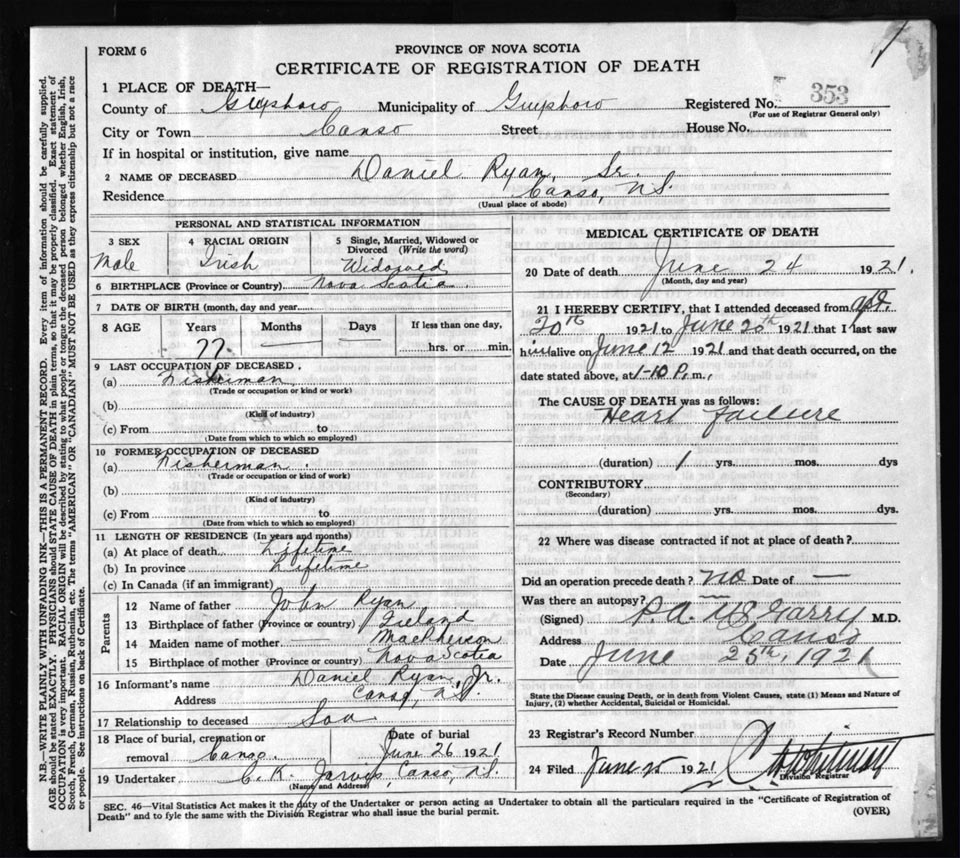 FORM 6
PROVINCE OF NOVA SCOTIA
CERTIFICATE OF REGISTRATION OF DEATH
1 PLACE OF DEATH—
County of Guysboro Municipality of Guysboro Registered No. 353
(For use of Registrar General only)
City or Town Canso Street House No.
If in hospital or institution, give name
2 NAME OF DECEASED Daniel Ryan, Sr.
Residence Canso, N.S.
(Usual place of abode)
PERSONAL AND STATISTICAL INFORMATION
3 SEX Male
4 RACIAL ORIGIN Irish
5 Single, Married, Widowed or Divorced (Write the word) Widowed
6 BIRTHPLACE (Province or Country) Nova Scotia.
7 DATE OF BIRTH (month, day and year)
8 AGE Years 77 Months — Days — If less than one day, hrs. or min.
9 LAST OCCUPATION OF DECEASED.
(a) Fisherman
(Trade or occupation or kind or work)
(b)
(Kind of industry)
(c) From to
(Date from which to which so employed)
10 FORMER OCCUPATION OF DECEASED
(a) Fisherman.
(Trade or occupation or kind or work)
(b)
(Kind of industry)
(c) From to
(Date from which to which so employed)
11 LENGTH OF RESIDENCE (In years and months)
(a) At place of death Lifetime
(b) In province Lifetime
(c) In Canada (if an immigrant)
Parents
12 Name of father John Ryan
13 Birthplace of father (Province or country) Ireland
14 Maiden name of mother — MacPherson
15 Birthplace of mother (Province or country) Nova Scotia
16 Informant's name Daniel Ryan, Jr.
Address Canso, N.S.
17 Relationship to deceased Son
18 Place of burial, cremation or removal Canso. Date of burial June 26 1921
19 Undertaker C. K. Jarvis, Canso, N.S.
(Name and Address)
MEDICAL CERTIFICATE OF DEATH
20 Date of death June 24 1921.
(Month, day and year)
21 I HEREBY CERTIFY, that I attended deceased from
20th 1921 to June 20th 1921 that I last saw
him alive on June 12 1921 and that death occurred, on the
date stated above, at 1-10 P. m.,
The CAUSE OF DEATH was as follows:
Heart Failure
(duration) 1 yrs. mos. dys
CONTRIBUTORY
(Secondary)
(duration) yrs. mos. dys.
22 Where was disease contracted if not at place of death?
Did an operation precede death? no Date of —
Was there an autopsy? —
(Signed) P. A. McGarry M.D.
Address Canso
Date June 25th, 1921
State the Disease causing Death, or in death from Violent Causes, state (1) Means and Nature of
Injury, (2) whether Accidental, Suicidal or Homicidal.
23 Registrar's Record Number
24 Filed June 25 1921
Division Registrar
SEC. 46—Vital Statistics Act makes it the duty of the Undertaker or person acting as Undertaker to obtain all the particulars required in the "Certificate of Registration of
Death" and to fyle the same with the Division Registrar who shall issue the burial permit. (OVER)
N.B.—WRITE PLAINLY WITH UNFADING INK—THIS IS A PERMANENT RECORD. Every item of information should be carefully supplied.
AGE should be stated EXACTLY. PHYSICIANS should STATE CAUSE OF DEATH in plain terms, so that it may be properly classified. Exact statement of
OCCUPATION is very important. RACIAL ORIGIN will be described by stating to what people or tongue the deceased person belonged whether English, Irish,
Scotch, French, German, Russian, Ruthenian, etc. The terms "AMERICAN" OR "CANADIAN" MUST NOT BE USED as they express citizenship but not a race
or people. See instructions on back of Certificate.